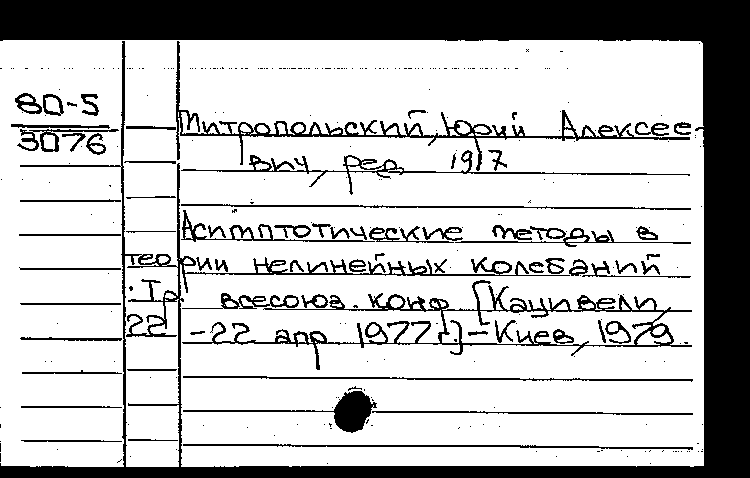 80-5
3076
Митропольский, Юрий Алексее-
вич, ред. 1917
Асимптотические методы в
теории нелинейных колебаний
. Тр. всесоюз. конф [Кацивели,
22 -22 апр 1977 г.] - Киев, 1979.